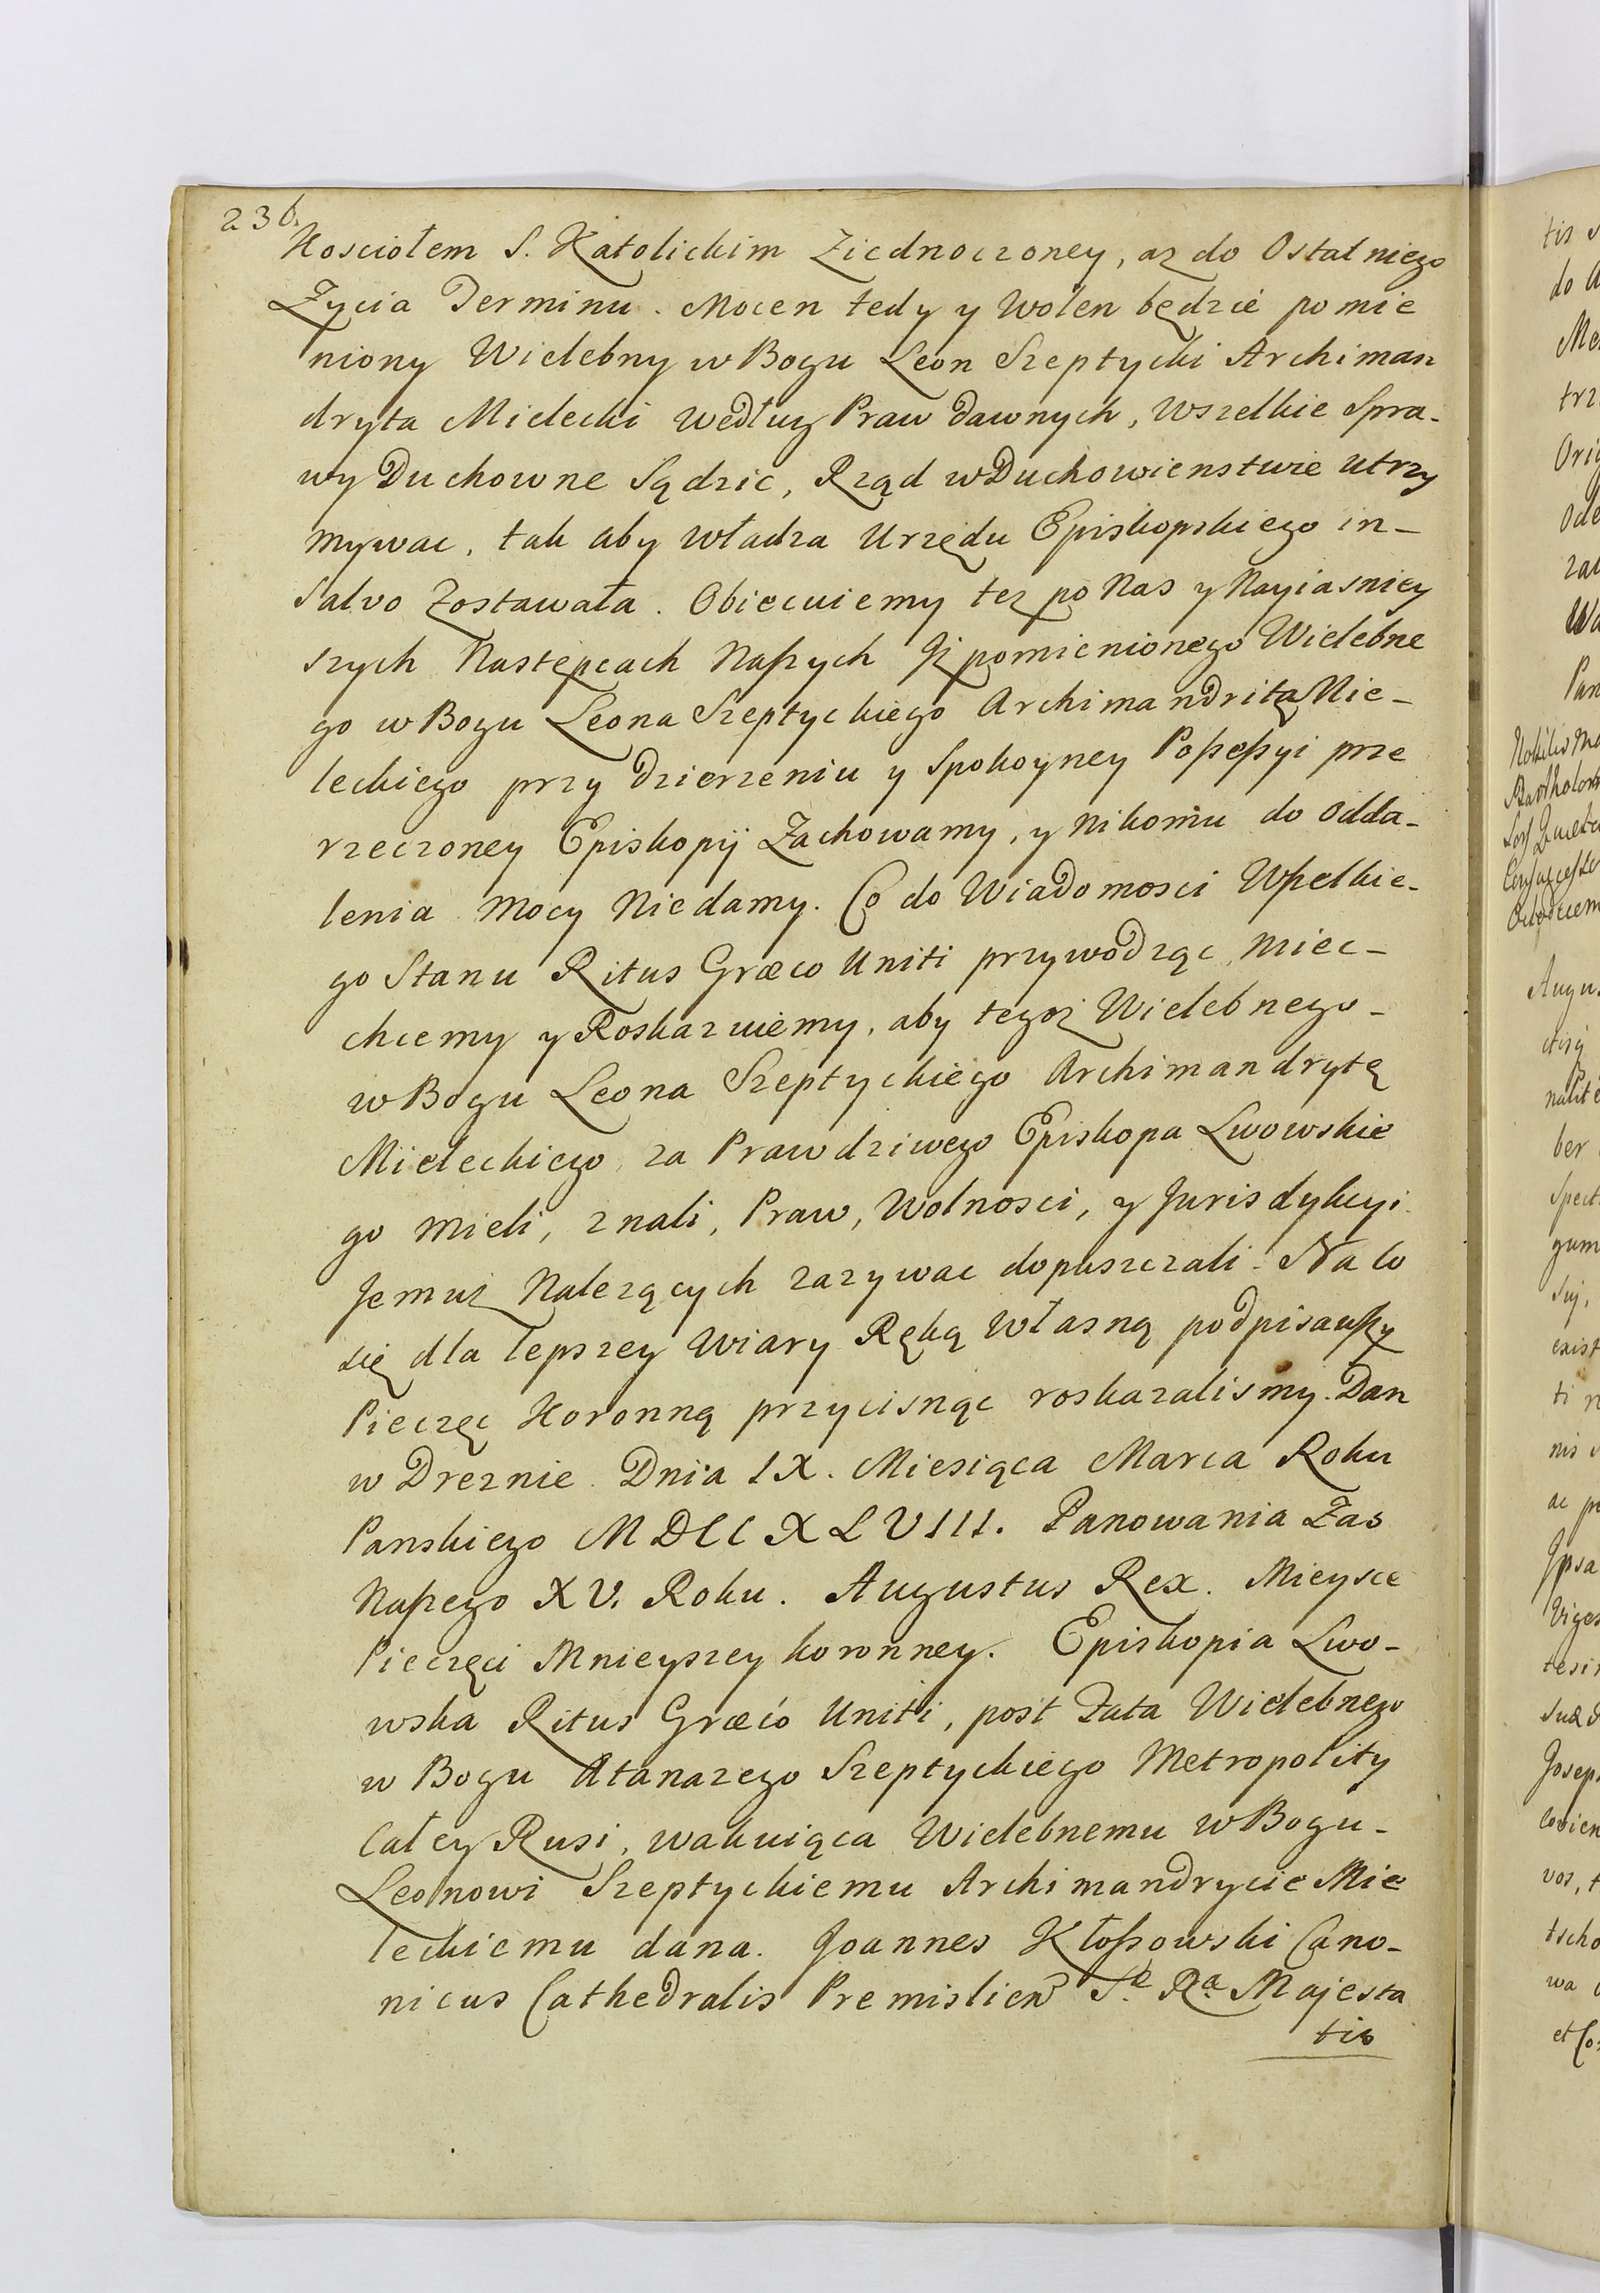 236.
Kosciołem S. Katolickim Ziednoczoney, az do Ostatniego
Życia Terminu. Mocen tedy y Wolen będzie pomie
niony Wielebny w Bogu Leon Szeptycki Archiman
dryta Mielecki według Praw dawnych, Wszelkie Spra-
wy Duchowne Sądzic, Rząd w Duchowienstwie utrzy
mywac, tak aby władza Urzędu Episkopskiego in-
Salvo Zostawała. Obiecuiemy tez po Nas y Nayiasniey
szych Nastepcach Naszych Jż pomienionego Wielebne
go w Bogu Leona Szeptyckiego Archimandritę Mie-
leckiego przy dzierzeniu y Spokoyney Possessyi prze
rzeczoney Episkopij Zachowamy, y nikomu do odda-
lenia Mocy Niedamy. Co do Wiadomosci Wszelkie-
go Stanu Ritus Græco Uniti przywodząc, miec-
chcemy y Roskazuiemy, aby tegoż Wielebnego-
w Bogu Leona Szeptyckiego Archimandrytę
Mieleckiego, za Prawdziwego Episkopa Lwowskie
go mieli, znali, Praw, Wolnosci, y Jurisdykcyi
Jemuz Nalezących zazywac dopuszczali. Na to
się dla lepszey Wiary Ręką Własną podpisawszy
Pieczęc Koronną przycisnąc roskazalismy. Dan
w Dreznie. Dnia IX. Miesiąca Marca Roku
Panskiego MDCCXLVIII. Panowania Zas
Naszego XV. Roku. Augustus Rex. Mieysce
Pieczęci Mnieyszey koronney. Episkopia Lwo-
wska Ritus Græco Uniti, post Fata Wielebnego
w Bogu Atanazego Szeptyckiego Metropolity
Całey Rusi, wakuiąca Wielebnemu w Bogu-
Leonowi Szeptyckiemu Archimandrycie Mie
leckiemu dana. Joannes Kłossowski Cano-
nicus Cathedralis Premislien Sæ Ræ Majesta
tis